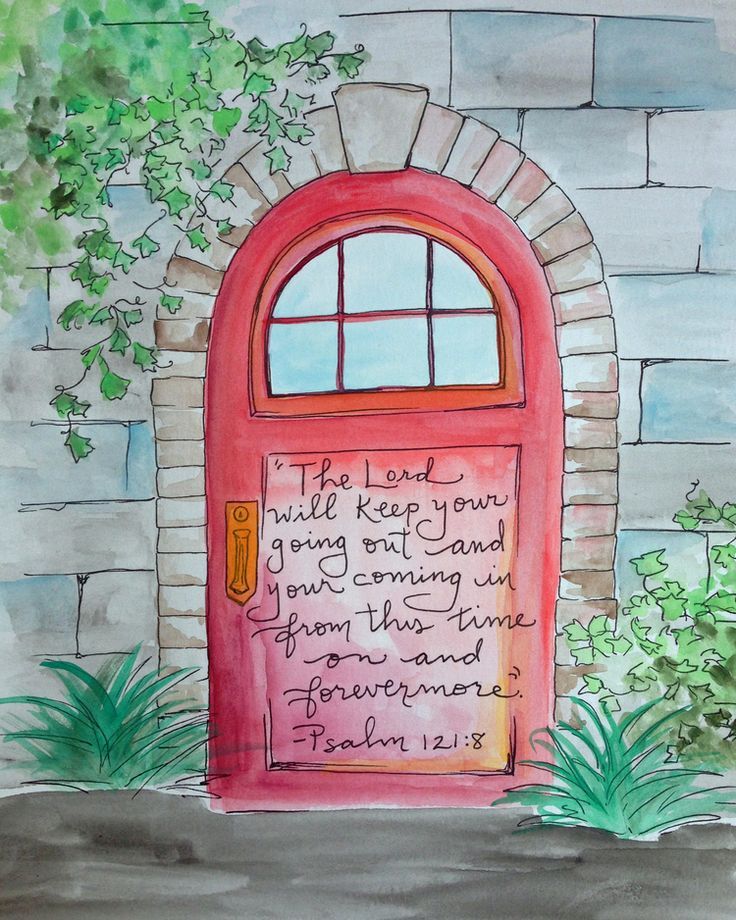 "The Lord
will keep your
going out and
your coming in
from this time
on and
forevermore".
-Psalm 121:8